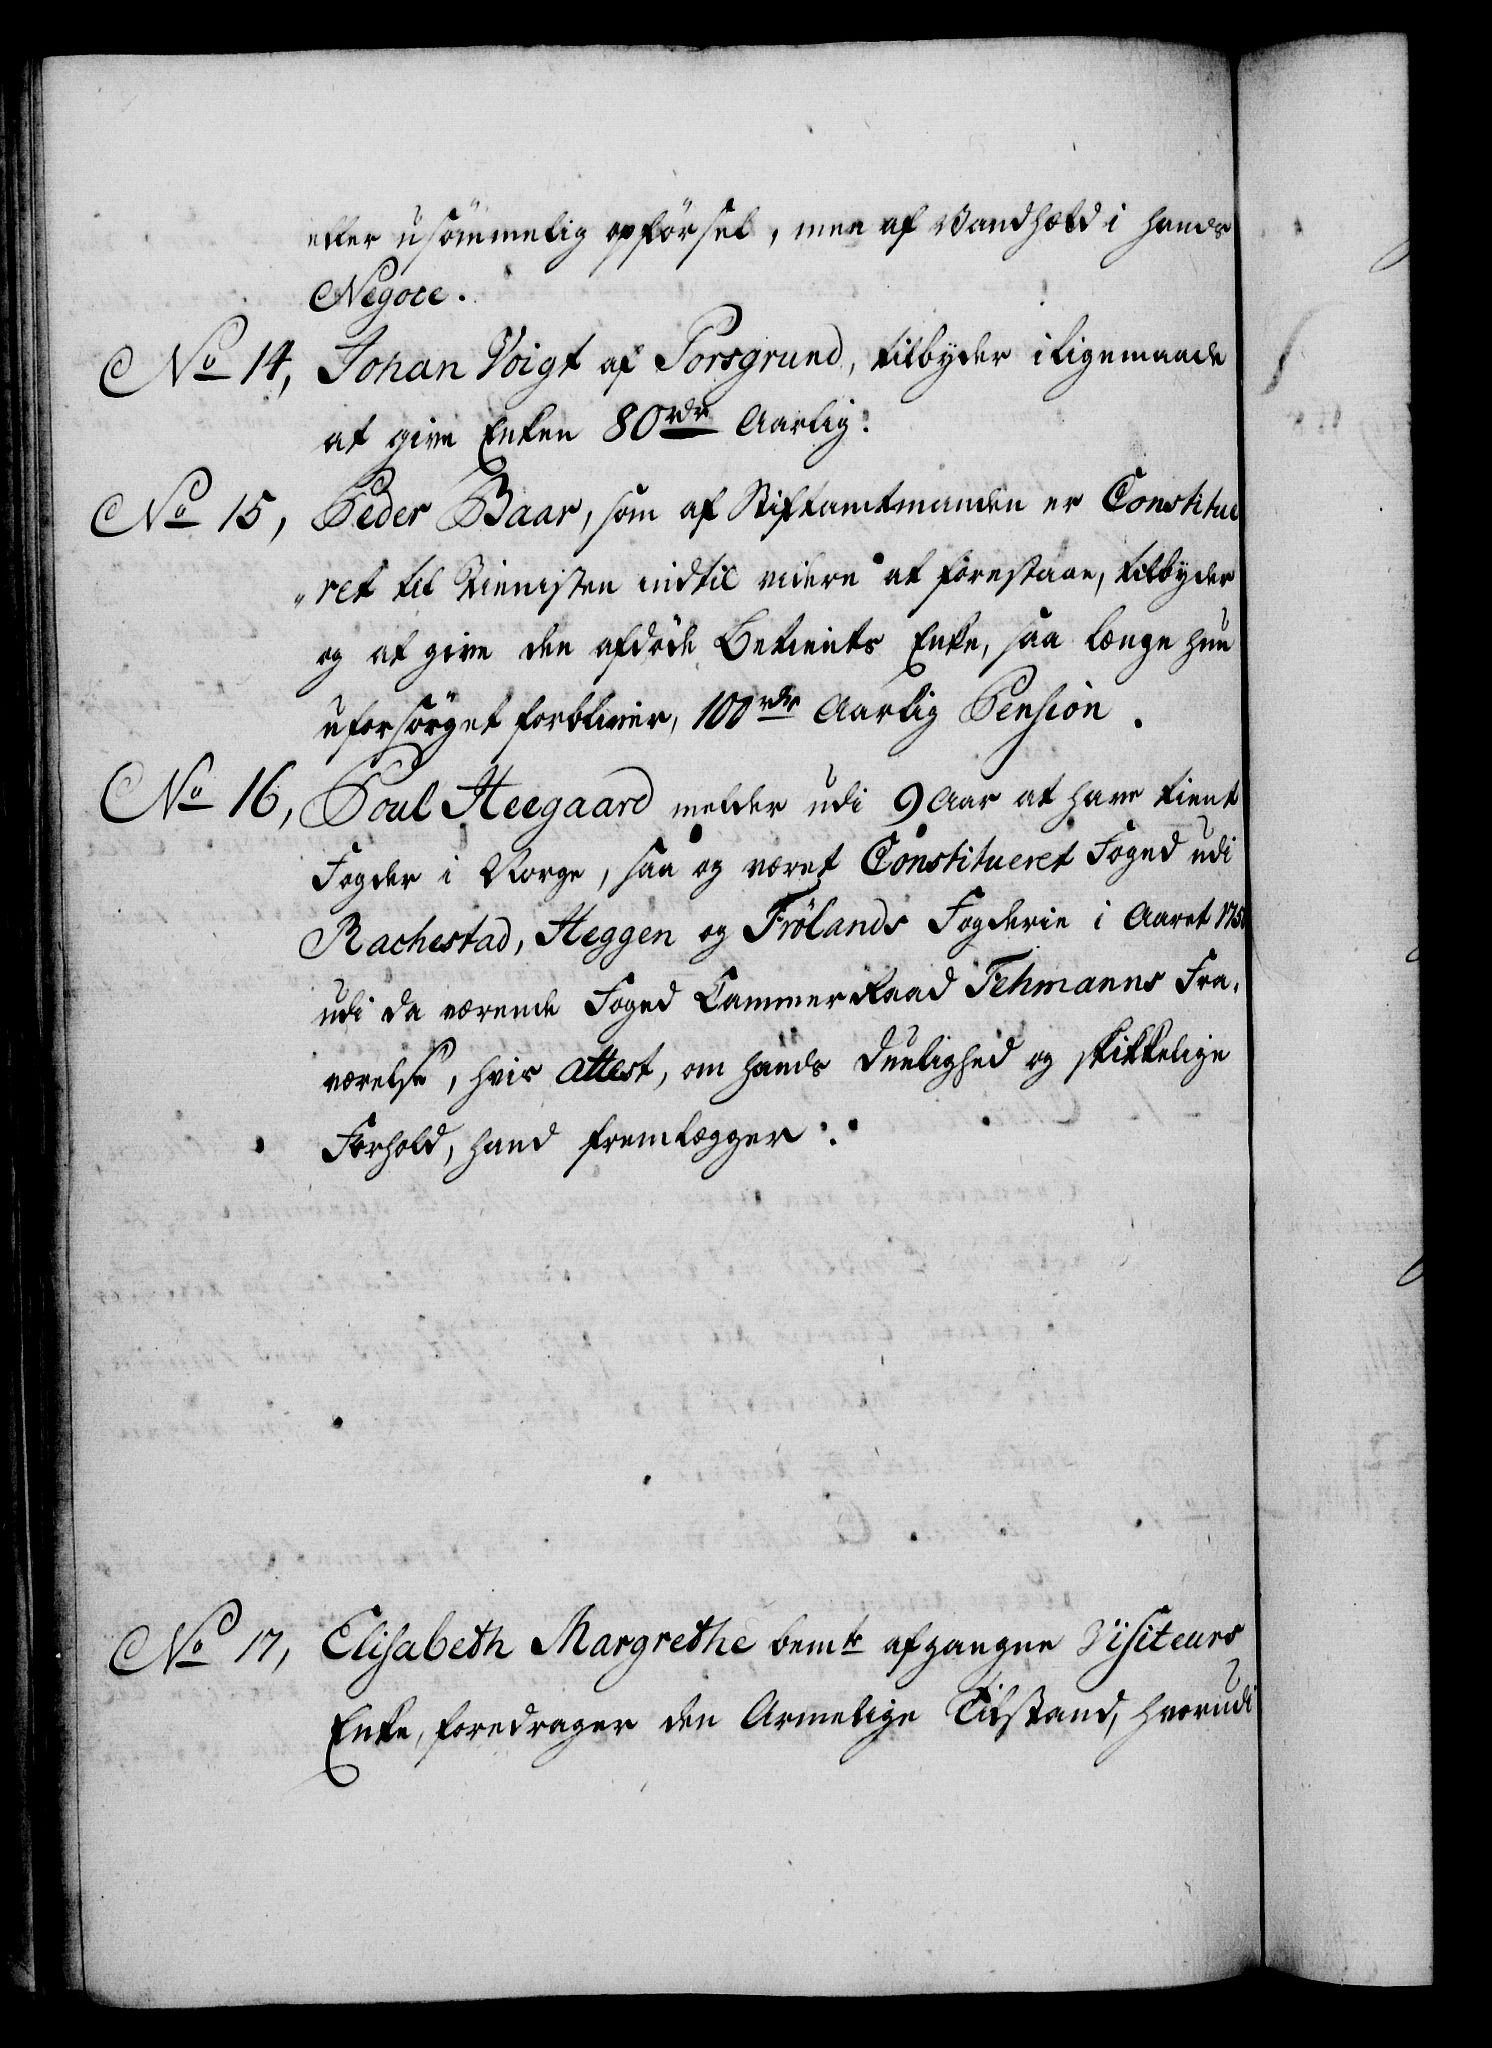 eller usömmelig opførsel, men af Vandhæld i hands
Negoce.
No 14, Johan Voigt af Porsgrund, tilbyder iligemaade
at give Enken 80 rdr Aarlig.
No 15, Peder Baar, som af Stiftamtmanden er Constitue
„ret til Tienisten indtil videre at forestaae, tilbyder
og at give den afdøde Betients Enke, saa længe hun
uforsörget forbliver, 100 rdr Aarlig Pension.
No 16, Poul Heegaard melder udi 9 Aar at have tient
Fogder i Norge, saa og været Constitueret Foged udi
Rachestad, Heggen og Frölands Fogderie i Aaret 175
udi da værende Foged Cammer Raad Tehmanns Fra-
værelse, hvis attest, om hands Duelighed og skikkelige
Forhold, hand fremlægger.
No 17, Elisabeth Margrethe bemte afgangne Visiteurs
Enke, foredrager den Armelige Tilstand, hvorudi